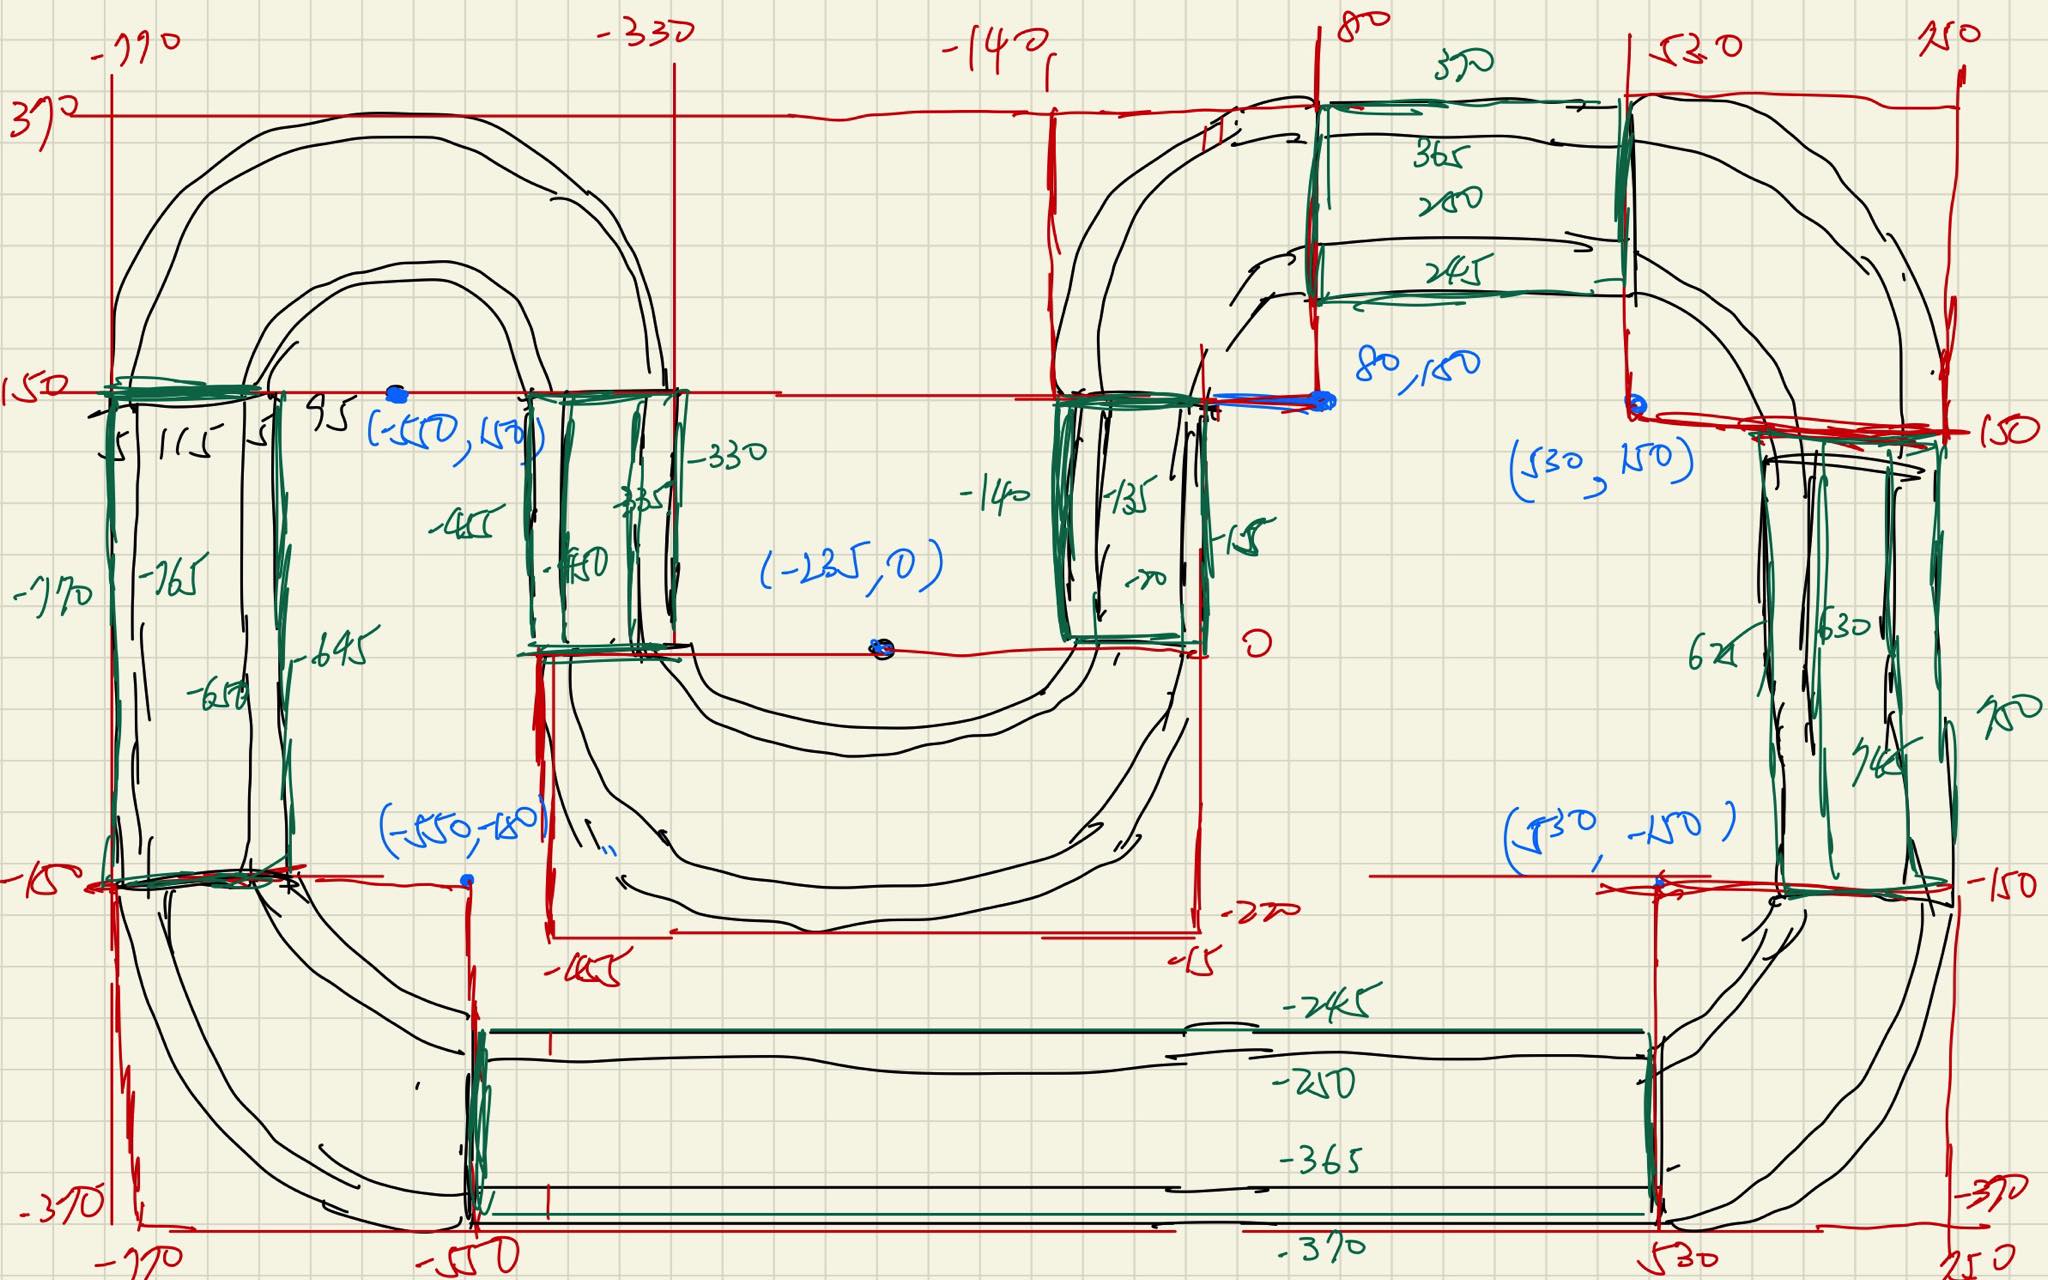 -770
-330
-140
80
530
750
370
370
365
250
245
150
5 115 5 95
(-550, 150)
80, 150
150
(530, 150)
-455
-335
-330
-140
-135
-15
-450
-20
(-235, 0)
0
-770
-765
-645
-650
625
630
745
750
(-550, -150)
(530, -150)
-150
-150
-220
-455
-15
-245
-250
-365
-370
-370
-370
-770
-550
530
750